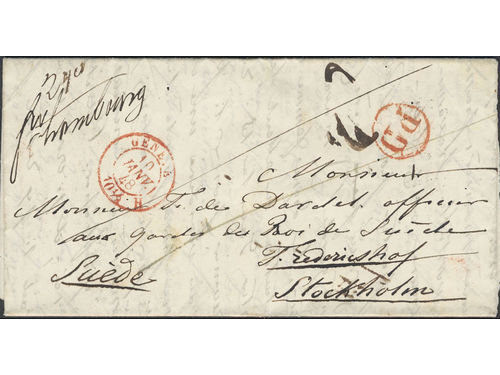 franco
Hambourg
GENÈVE
10
JANV.
48
10½ H
P.D.
Monsieur
Monsieur F. de Dardel, officier
aux gardes du Roi de Suède
Frederikshof
Suède
Stockholm